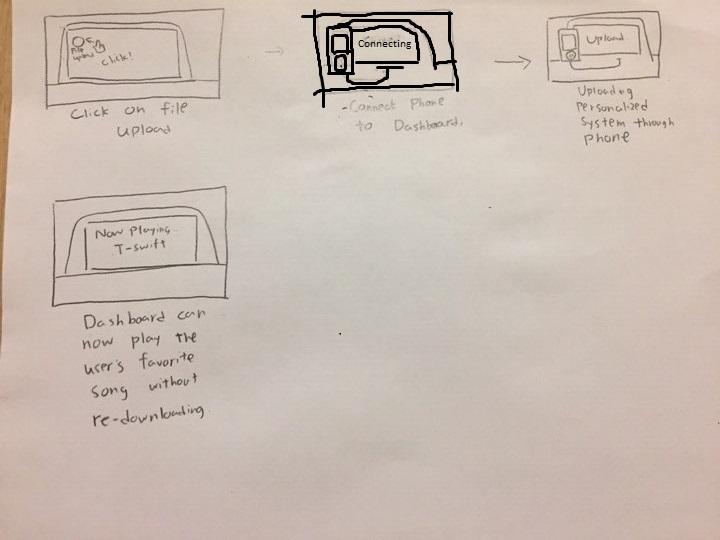 File
upload
Click!
Click on file
upload
Connecting
-Connect Phone
to Dashboard.
Upload
Uploading
Personalized
System through
Phone
Now Playing
T-swift
Dashboard can
now play the
user's favorite
song without
re-downloading.